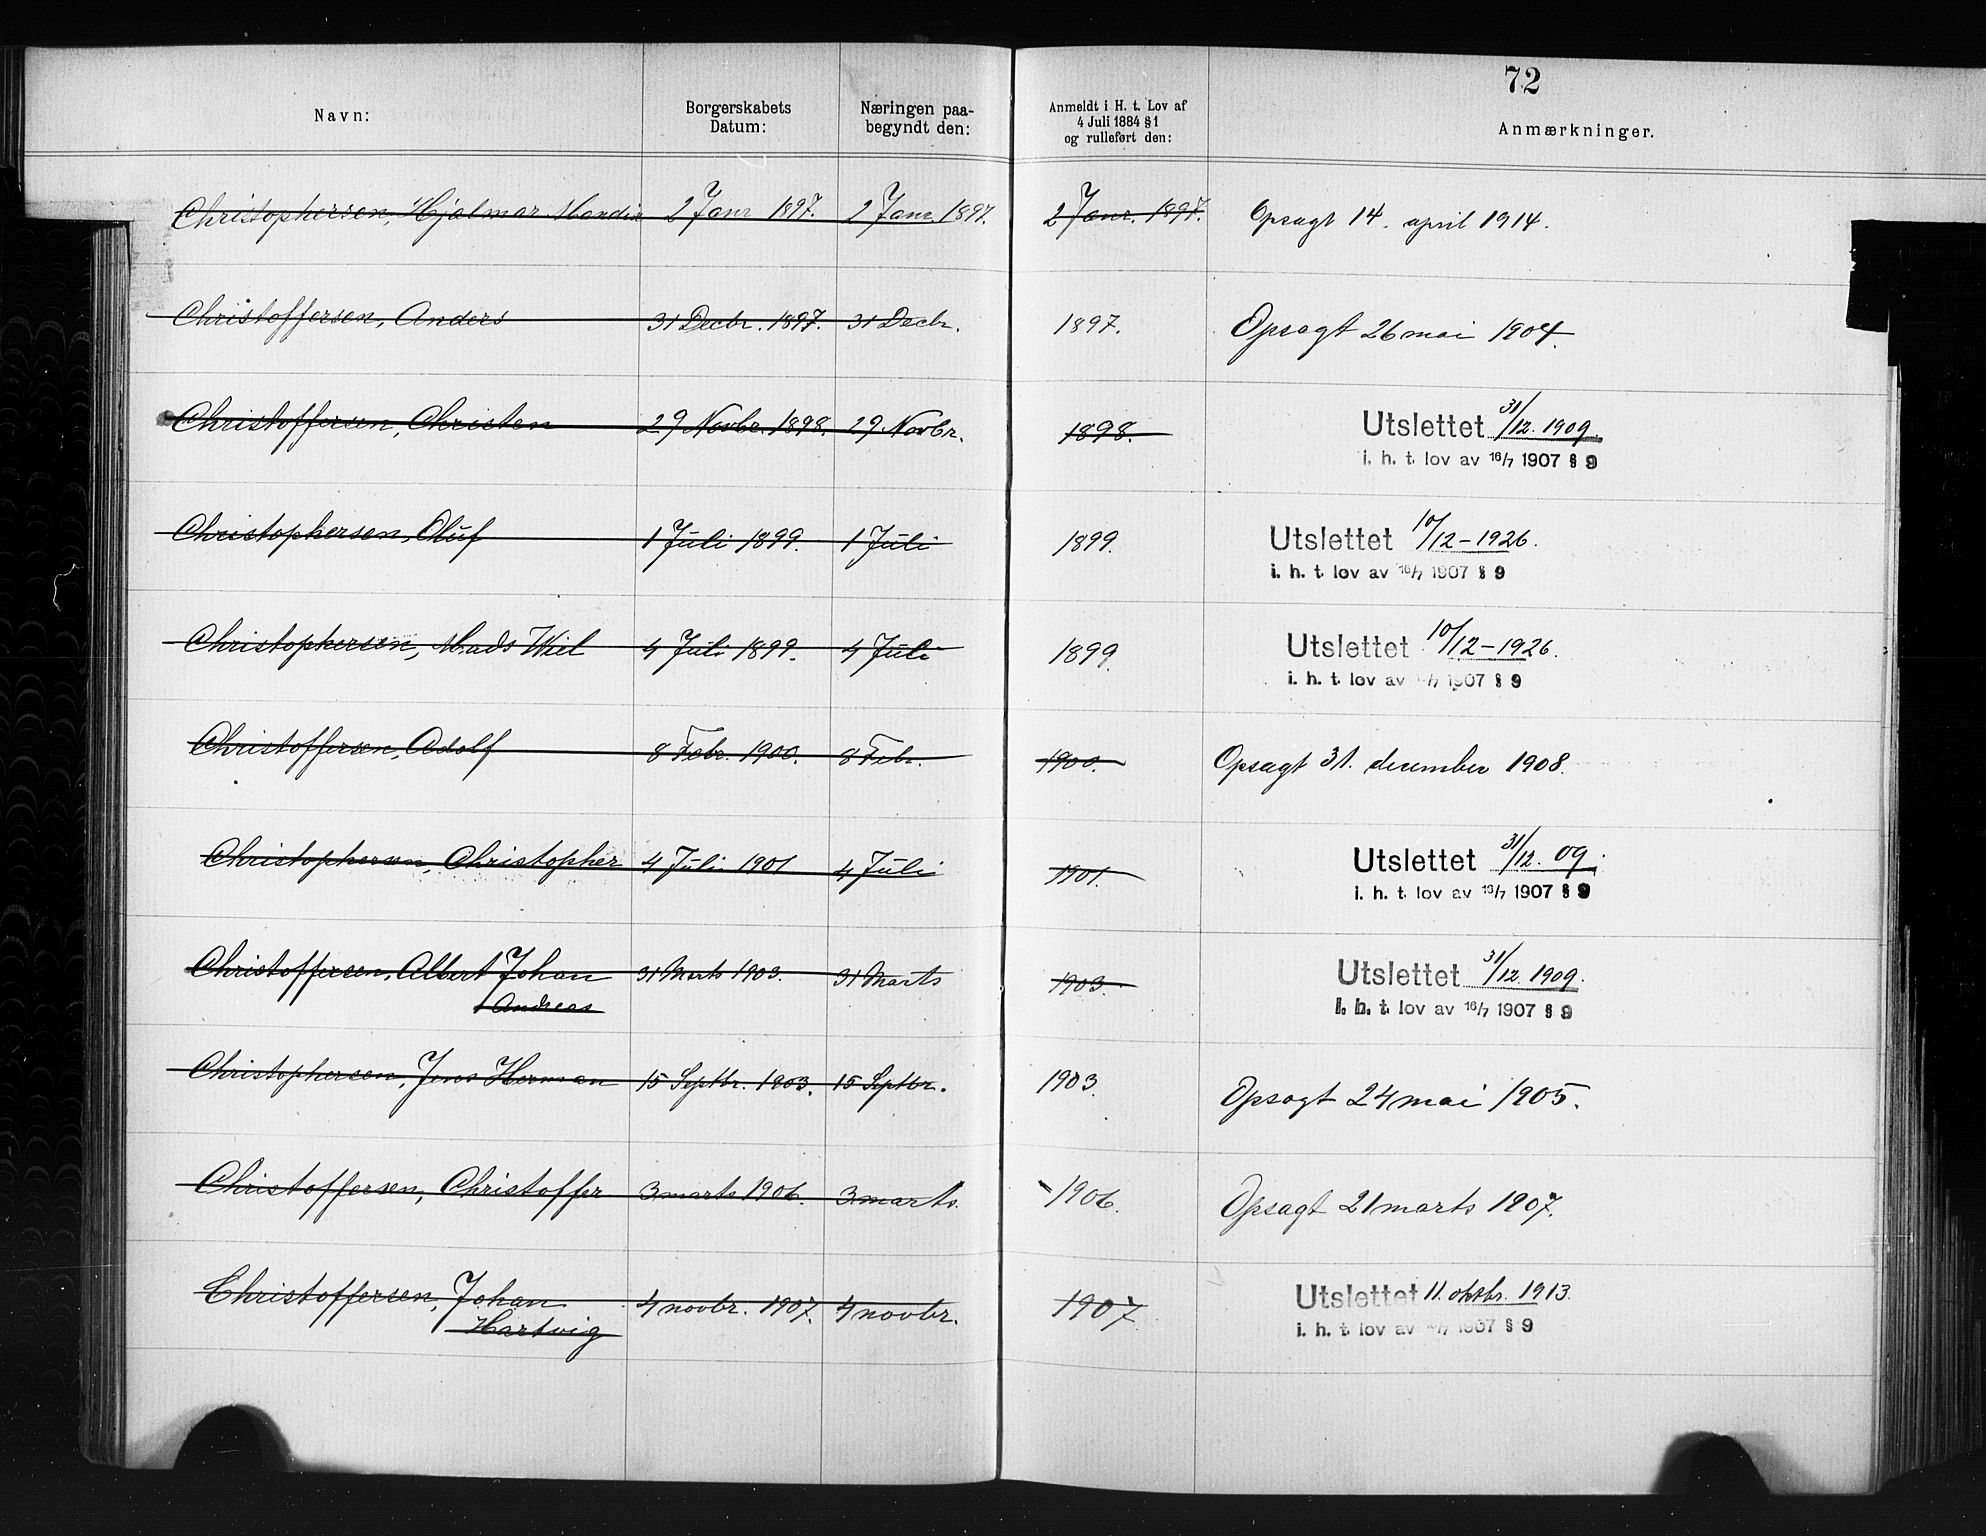 72
Navn:
Borgerskabets Datum:
Næringen paa-begyndt den:
Anmeldt i H. t. Lov af 4 Juli 1884 § 1 og rulleført den:
Anmærkninger.
Christophersen, Hjalmar 2 Janr 1897. 2 Janr. 1897. 2 Janr. 1897. Opsagt 14. april 1914.
Christoffersen, Anders 31 Decbr. 1897. 31 Decbr. 1897. Opsagt 26 mai 1904.
Christoffersen, Christen 29 Novbr. 1898. 29 Novbr. 1898. Utslettet 31/12. 1909.
i. h. t. lov av 16/7 1907 § 9
Christophersen, Oluf 1 Juli 1899. 1 Juli 1899. Utslettet 10/12-1926.
i. h. t. lov av 16/7 1907 § 9
Christophersen, Mads Wiel 4 Juli 1899. 4 Juli 1899. Utslettet 10/12-1926.
i. h. t. lov av 1907 § 9
Christoffersen, Adolf 8 Febr. 1900. 8 Febr. 1900. Opsagt 31. december 1908.
Christophersen, Christopher 4 Juli 1901 4 Juli 1901. Utslettet 31/12. 09.
i. h. t. lov av 16/7 1907 § 9
Christoffersen, Albert Johan 31 Marts 1903. 31 Marts 1903. Utslettet 31/12. 1909.
Andreas i. h. t. lov av 16/7 1907 § 9
Christophersen, Jens Herman 15 Septbr. 1903. 15 Septbr. 1903. Opsagt 24 mai 1905.
Christoffersen, Christoffer 3 marts 1906. 3 marts. 1906. Opsagt 21 marts 1907.
Christoffersen, Johan 4 novbr. 1907. 4 novbr. 1907 Utslettet 11. oktbr. 1913.
Hartvig i. h. t. lov av 1907 § 9